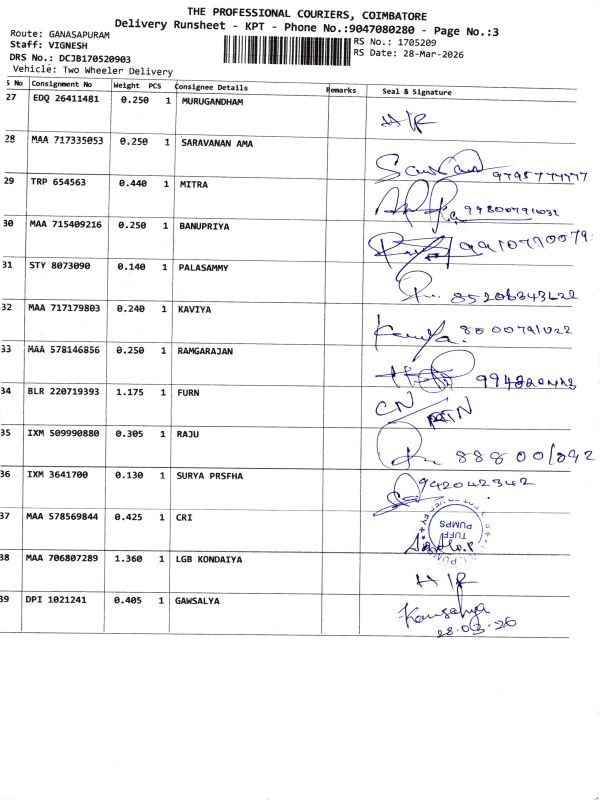 THE PROFESSIONAL COURIERS, COIMBATORE
Delivery Runsheet - KPT - Phone No.:9047080280 - Page No.:3
Route: GANASAPURAM
Staff: VIGNESH
RS No.: 1705209
DRS No.: DCJB170520903
RS Date: 28-Mar-2026
Vehicle: Two Wheeler Delivery
S No Consignment No Weight PCS Consignee Details Remarks Seal & Signature
27 EDQ 26411481 0.250 1 MURUGANDHAM
H/R
28 MAA 717335053 0.250 1 SARAVANAN AMA
29 TRP 654563 0.440 1 MITRA
30 MAA 715409216 0.250 1 BANUPRIYA
31 STY 8073090 0.140 1 PALASAMMY
32 MAA 717179803 0.240 1 KAVIYA
Kaviya. 8800791022
33 MAA 578146856 0.250 1 RAMGARAJAN
34 BLR 220719393 1.175 1 FURN
CN
35 IXM 509990880 0.305 1 RAJU
36 IXM 3641700 0.130 1 SURYA PRSFHA
9420042342
37 MAA 578569844 0.425 1 CRI
PUMPS
38 MAA 706807289 1.360 1 LGB KONDAIYA
H/R
39 DPI 1021241 0.405 1 GAWSALYA
Kousalya
28.03.26